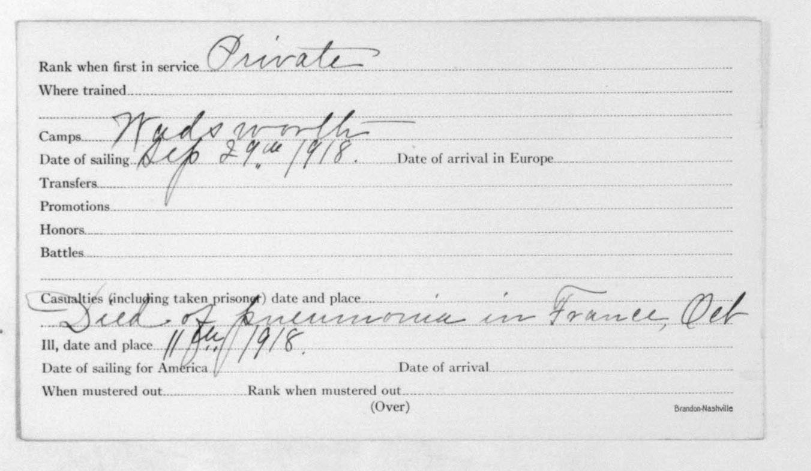 Rank when first in service Private
Where trained
Camps Wadsworth
Date of sailing Sep 29th 1918. Date of arrival in Europe
Transfers
Promotions
Honors
Battles
Casualties (including taken prisoner) date and place
Died of pneumonia in France, Oct
Ill, date and place 11th 1918.
Date of sailing for America Date of arrival
When mustered out Rank when mustered out
(Over)
Brandon-Nashville